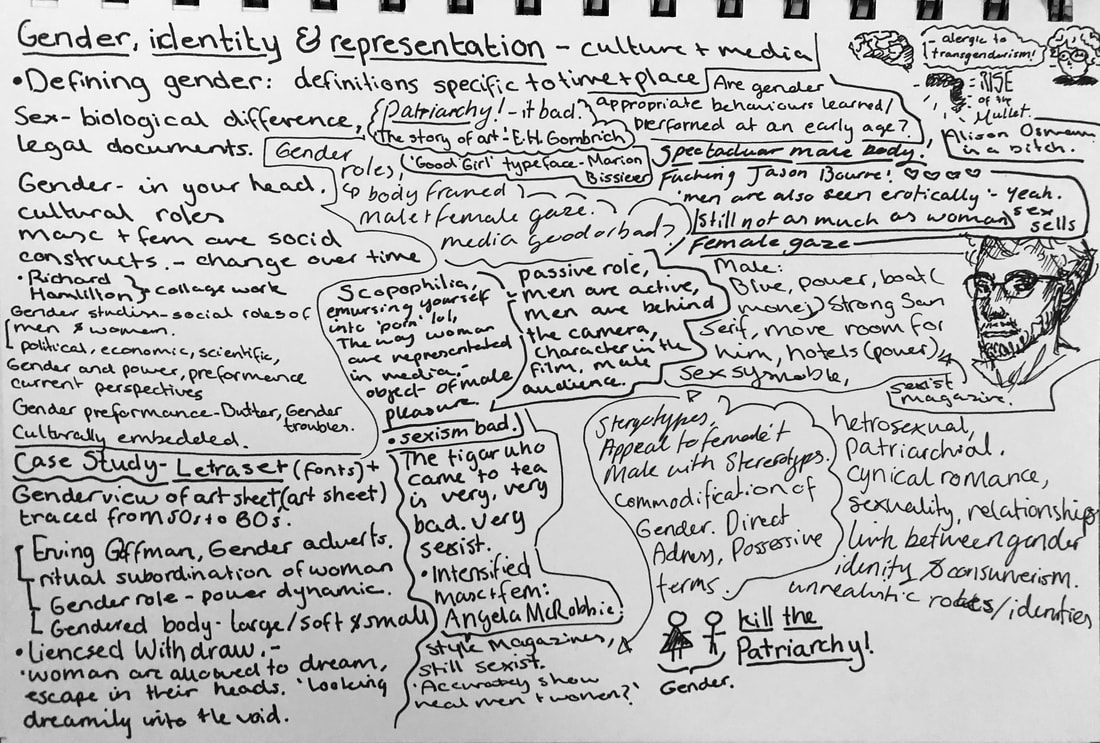 Gender, identity & representation - culture + media
• Defining gender: definitions specific to time + place
Sex - biological difference,
legal documents.
Gender - in your head.
cultural roles
masc + fem are socid
constructs. - change over time
• Richard
Hamillion } collage work
Gender studies - social roles of
men & women.
political, economic, scientific,
Gender and power, preformance
current perspectives
Gender preformance - Butter, Gender
troubles.
Culturally embedded.
Case Study - Letraset (fonts) +
Gender view of art sheet (art sheet)
traced from 50s to 80s.
Erving Goffman, Gender adverts.
ritual subordination of woman
Gender role - power dynamic.
Gendered body - large/soft & small
• Liencsed Withdraw. -
• woman are allowed to dream,
escape in their heads. 'looking
dreamily into the void.
Patriarchy! - it bad.
The story of art - E.H. Gombrich
'Good Girl' typeface - Marion
Bissierr
Gender
roles,
↳ body framed
male + female gaze.
media good or bad?
Are gender
appropriate behaviours learned/
preformed at an early age?
- alergic to
transgenderism!
RISE
of the
Mullet.
Alison Osmann
is a bitch.
Spectacluar male body.
Fucking Jason Bourne! ♡♡♡♡
'men are also seen erotically' - yeah.
still not as much as woman sex
sells
Female gaze
Scopophilia,
emursing yourself
into 'porn' lol,
The way woman
are represented
in media. -
object of male
pleasure.
passive role,
men are active,
men are behind
the camera,
Character in the
film, male
audience.
Male:
Blue, power, boat (
money) Strong San
Serif, move room for
him, hotels (power),
sex symoble,
sexist
magazine.
• sexism bad.
The tigar who
came to tea
is very, very
bad. Very
sexist.
• Intensified
masc + fem:
Angela McRobbie.
style magazines,
still sexist.
'Accurately show
real men + women?'
Stereotypes,
Appeal to female +
Male with Stererotyps.
Commodification of
Gender. Direct
Adress, Possessive
terms.
hetrosexual,
Patriarchial.
cynical romance,
sexuality, relationships
link between gender
idenity & consumerism.
unrealistic roles/identies
Gender.
Kill the
Patriarchy!